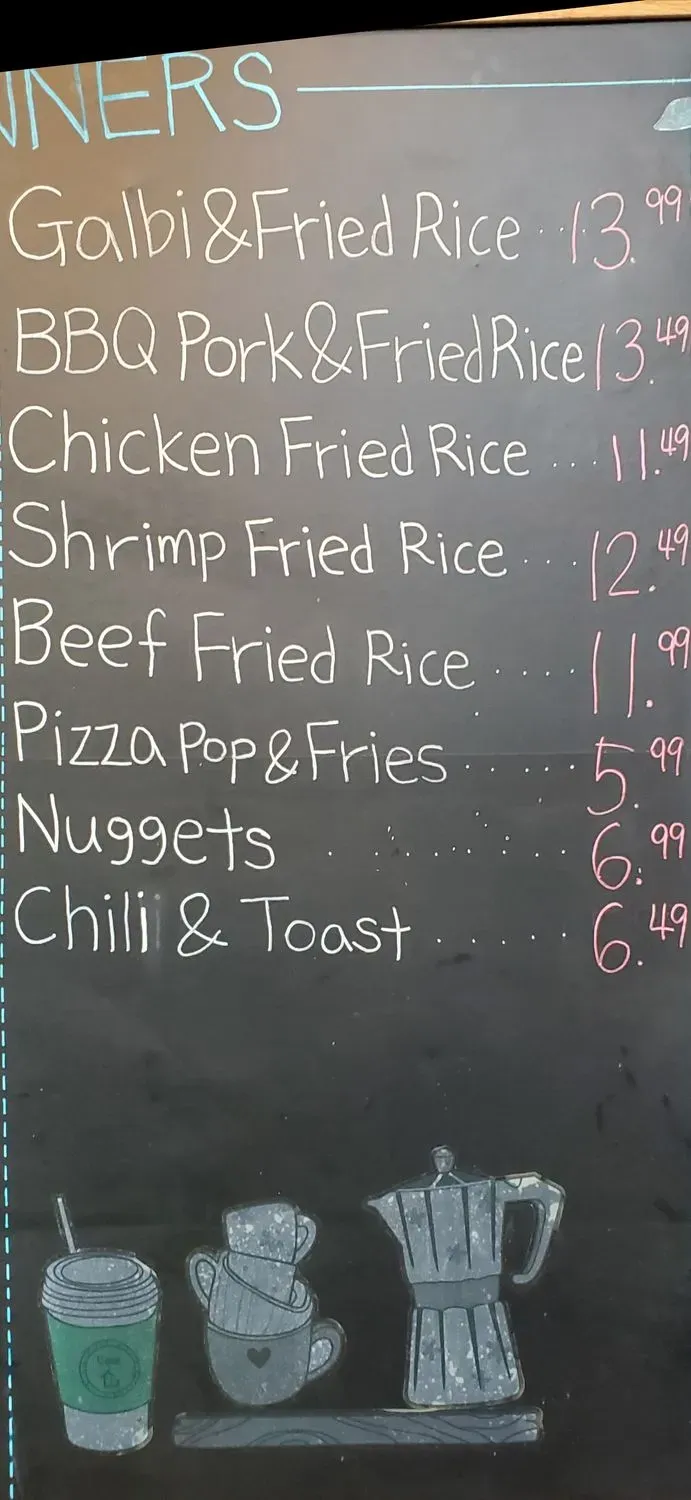 NNERS
Galbi & Fried Rice .. 13.99
BBQ Pork & Fried Rice 13.49
Chicken Fried Rice ... 11.49
Shrimp Fried Rice ... 12.49
Beef Fried Rice .... 11.99
Pizza Pop & Fries ..... 5.99
Nuggets . ........ 6.99
Chili & Toast ..... 6.49